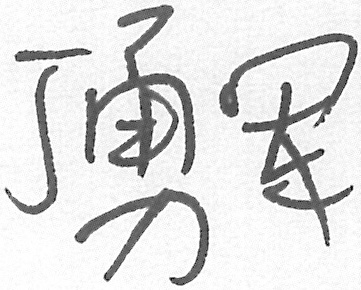 丁勇军